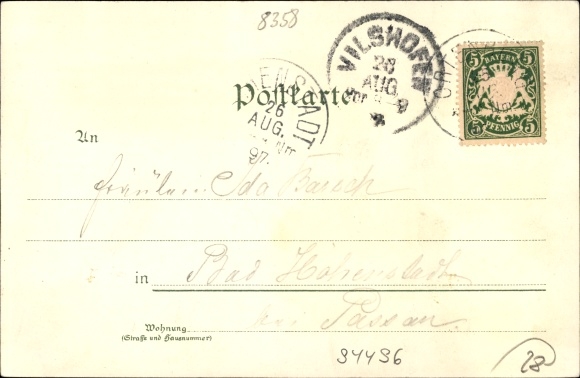 8358
VILSHOFEN
26
AUG.
ENSTADT
26
AUG.
97.
5 BAYERN 5
5 PFENNIG 5
Postkarte
An
Fräulein Ida
in Bad Höhenstadt
bei Passau.
Wohnung
(Straße und Hausnummer)
94496
28